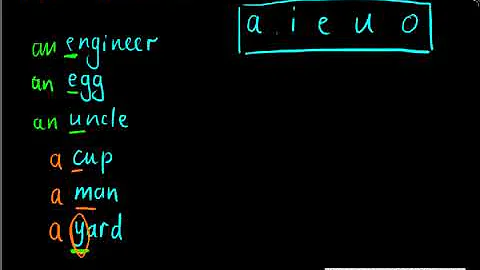 a i e u o
an engineer
an egg
an uncle
a cup
a man
a yard